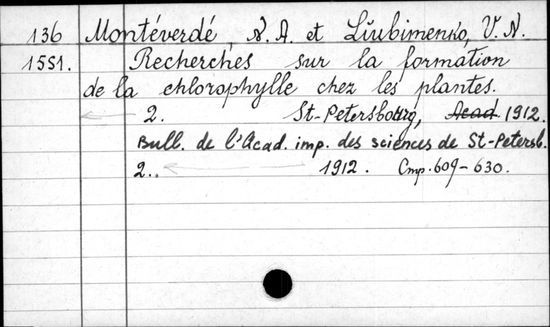 136 Montéverdé, N. A. et Liubimenko, V. N.
1551. Recherches sur la formation
de la chlorophylle chez les plantes.
2. St-Petersbourg, Acad 1912.
Bull. de l'Acad. imp. des sciences de St-Petersb.
2.. 1912. Стр. 609-630.